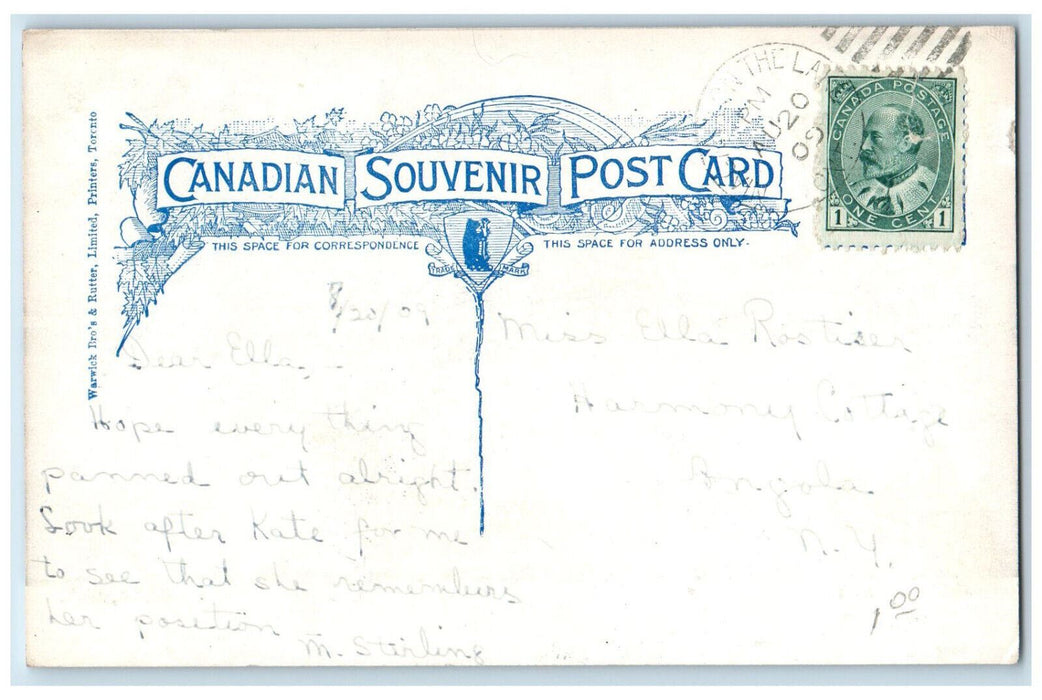 CANADIAN SOUVENIR POST CARD
THIS SPACE FOR CORRESPONDENCE
THIS SPACE FOR ADDRESS ONLY.
TRADE MARK
Warwick Bro's & Rutter, Limited, Printers, Toronto
ON THE LA
PM
AU 20
09
CANADA POSTAGE
1 ONE CENT 1
8/20/09
Dear Ella,-
Hope every thing
panned out alright.
Look after Kate for me
to see that she remembers
her position
M. Stirling
Miss Ella
Harmony Cottage
Angola
N.Y.
1 00